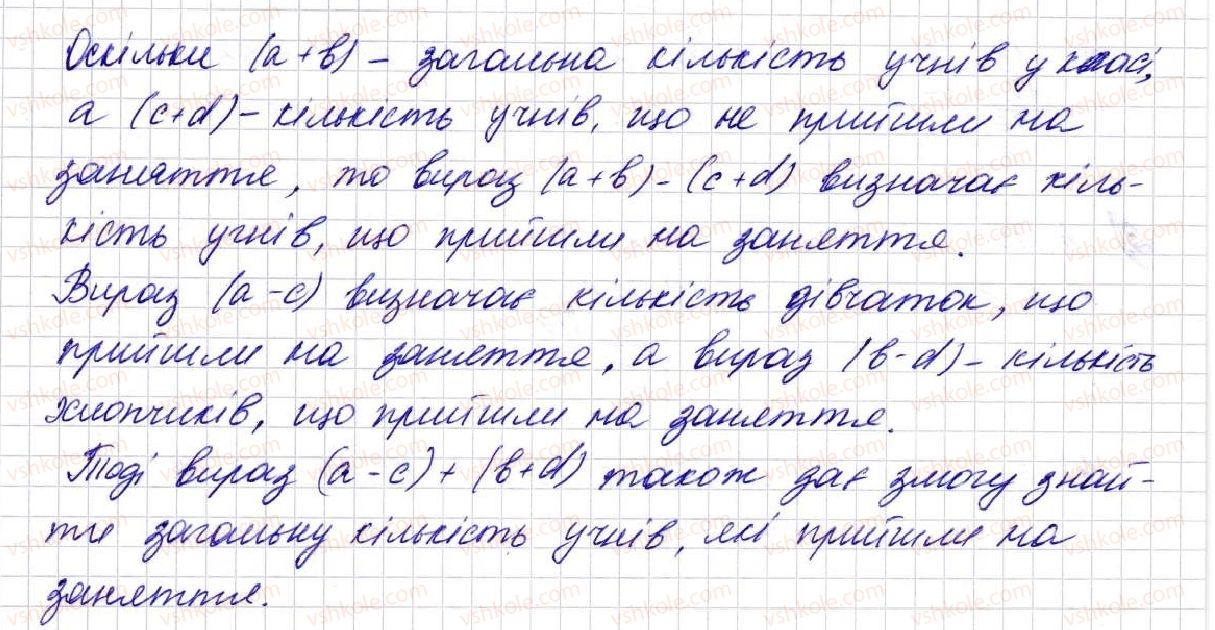 Оскільки (a+b) – загальна кількість учнів у класі,
а (c+d) – кількість учнів, що не прийшли на
заняття, то вираз (a+b)-(c+d) визначає кіль-
кість учнів, що прийшли на заняття.
Вираз (a-c) визначає кількість дівчаток, що
прийшли на заняття, а вираз (b-d) – кількість
хлопчиків, що прийшли на заняття.
Тоді вираз (a-c)+(b+d) також дає змогу знай-
ти загальну кількість учнів, які прийшли на
заняття.